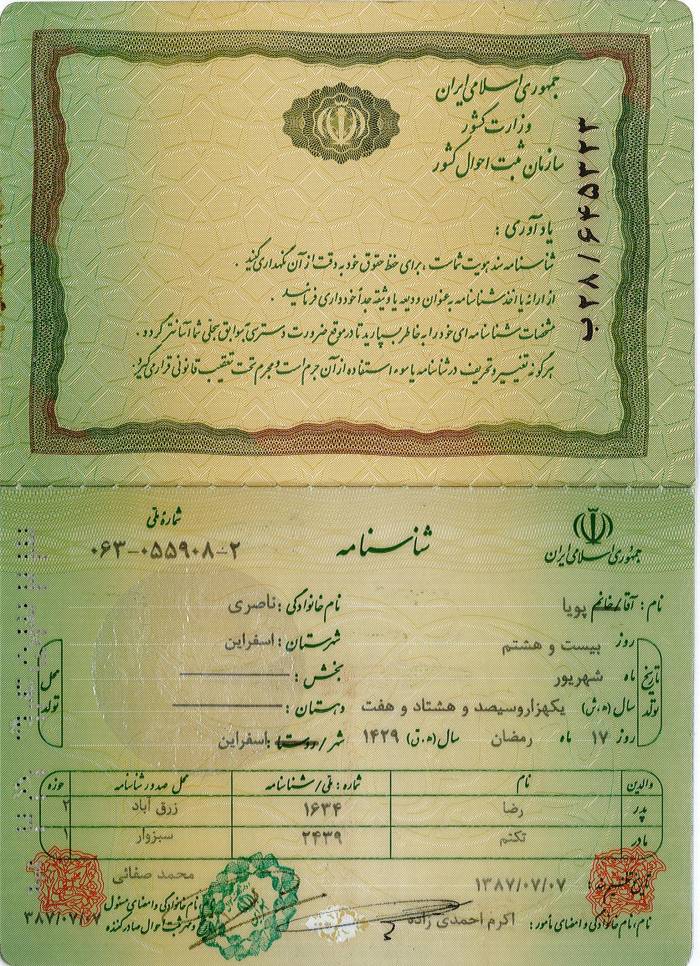 جمهوری اسلامی ایران
وزارت کشور
سازمان ثبت احوال کشور
ب۲۸/۶۴۵۳۲۳
یادآوری :
شناسنامه سند هویت شماست ، برای حفظ حقوق خود به دقت از آن نگهداری کنید .
از ارائه یا اخذ شناسنامه به عنوان ودیعه یا وثیقه جداً خودداری فرمائید .
مشخصات شناسنامه ای خود را به خاطر بسپارید تا در موقع ضرورت دسترسی آسوابق سجلی شما آسانتر گردد .
هرگونه تغییر و تحریف در شناسنامه یا سوء استفاده از آن جرم است و مجرم تحت تعقیب قانونی قرار می گیرد .
جمهوری اسلامی ایران
شناسنامه
شماره ملی
۰۶۳-۰۵۵۹۰۸-۲
نام : آقا/خانم پویا
نام خانوادگی : ناصری
تاریخ تولد
روز بیست و هشتم
ماه شهریور
سال (ه.ش) یکهزاروسیصد و هشتاد و هفت
روز ۱۷ ماه رمضان سال (ه.ق) ۱۴۲۹
محل تولد
شهرستان : اسفراین
بخش :
دهستان :
شهر/روستا : اسفراین
والدین نام شماره : ملی/شناسنامه محل صدور شناسنامه حوزه
پدر رضا ۱۶۳۴ زرق آباد ۲
مادر تکتم ۲۴۳۹ سبزوار ۱
تاریخ تنظیم سند : ۱۳۸۷/۰۷/۰۷
نام، نام خانوادگی و امضای مأمور : اکرم احمدی زاده
محمد صفائی
نام خانوادگی و امضای مسئول
و مهر ثبت احوال صادر کننده
۳۸۷/۰۷/۰۷